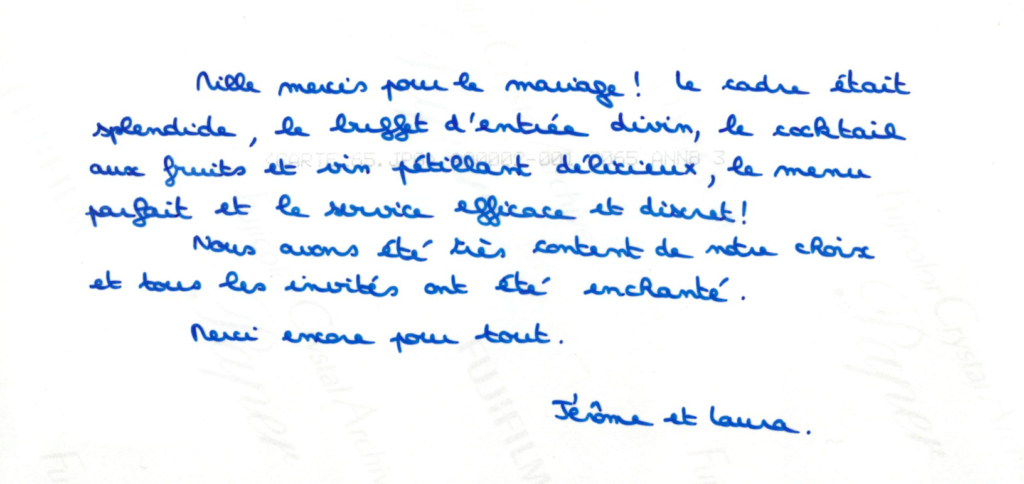 Mille mercis pour le mariage ! Le cadre était
splendide, le buffet d'entrée divin, le cocktail
aux fruits et vin pétillant délicieux, le menu
parfait et le service efficace et discret !
Nous avons été très content de notre choix
et tous les invités ont été enchanté.
Merci encore pour tout.
Jérôme et Laura.
FUJIFILM